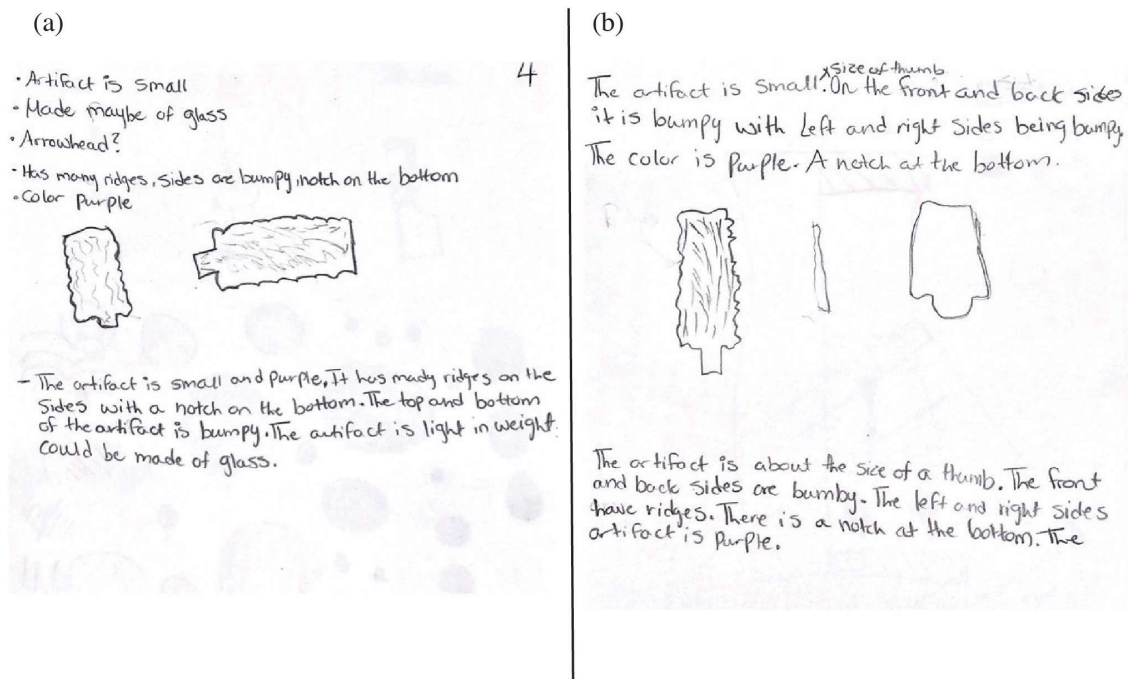 (a)
4
· Artifact is small
· Made maybe of glass
· Arrowhead?
· Has many ridges, sides are bumpy, notch on the bottom
· Color Purple
- The artifact is small and purple, It has mady ridges on the
sides with a notch on the bottom. The top and bottom
of the artifact is bumpy. The artifact is light in weight.
could be made of glass.
(b)
*size of thumb
The artifact is small. On the front and back sides
it is bumpy with left and right sides being bumpy.
The color is Purple. A notch at the bottom.
The artifact is about the size of a thumb. The front
and back sides are bumby. The left and right sides
have ridges. There is a notch at the bottom. The
artifact is purple.